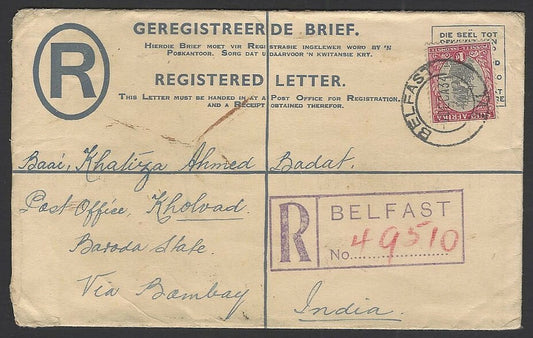 GEREGISTREERDE BRIEF.
HIERDIE BRIEF MOET VIR REGISTRASIE INGELEWER WORD BY 'N
POSKANTOOR. SORG DAT U DAARVOOR 'N KWITANSIE KRY.
R
REGISTERED LETTER.
THIS LETTER MUST BE HANDED IN AT A POST OFFICE FOR REGISTRATION,
AND A RECEIPT OBTAINED THEREFOR.
DIE SEEL TOT
BELFAST
AFRIKA
Baai, Khatirza Ahmed Badat.
Post Office, Kholvad.
Baroda State.
Via Bombay
India.
R BELFAST
No. 49510